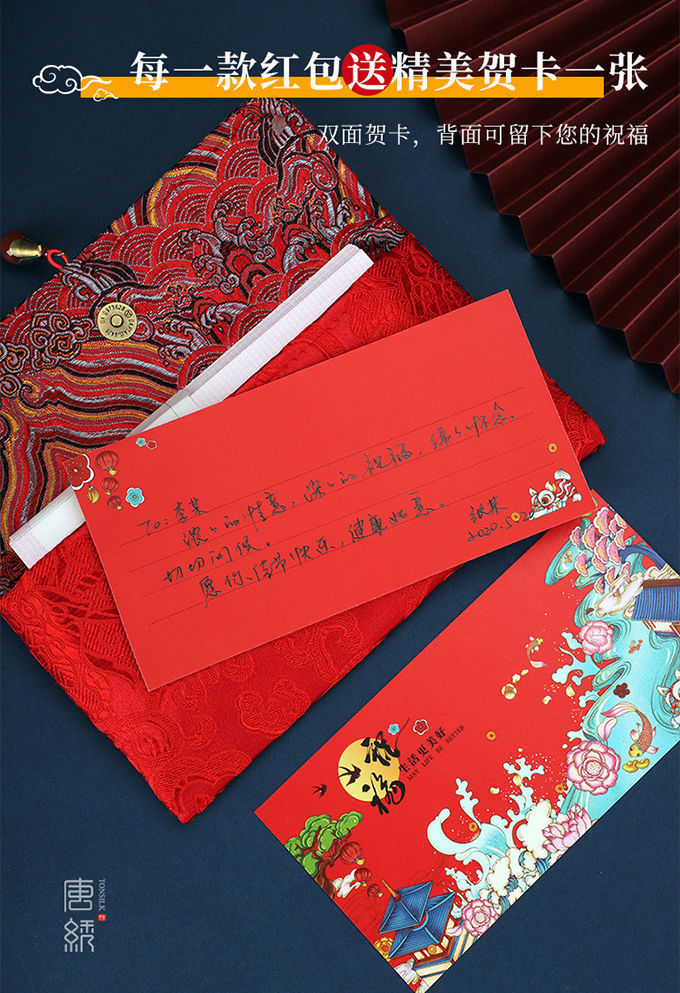 每一款红包送精美贺卡一张
双面贺卡，背面可留下您的祝福
TO：李某
浓浓的情意，深深的祝福，绵绵怀念，
切切问候。
愿你：佳节快乐，健康如意。
张某
祝福
生活更美好
MAY LIFE BE BETTER
唐绣
TONSILK